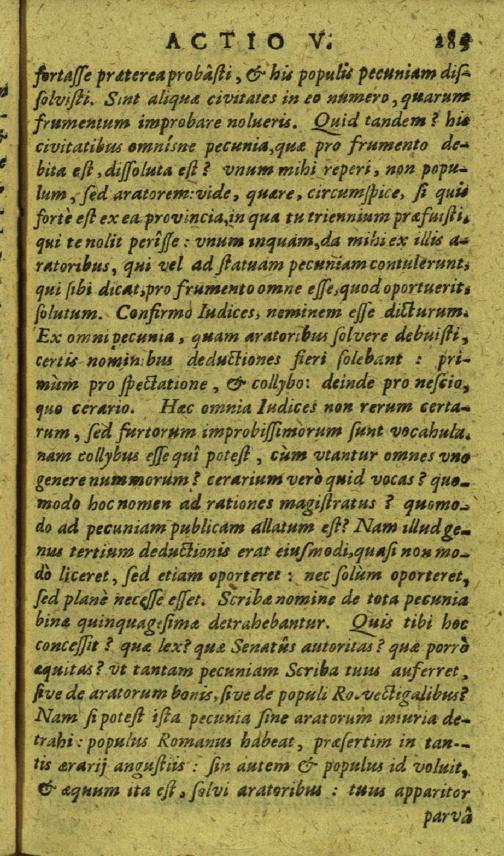 ACTIO V. 285
fortasse præterea probâsti, & his populis pecuniam dis-
solvisti. Sint aliquæ civitates in eo numero, quarum
frumentum improbare nolueris. Quid tandem? his
civitatibus omnísne pecunia, quæ pro frumento de-
bita est, dissoluta est? vnum mihi reperi, non popu-
lum, sed aratorem: vide, quære, circumspice, si quis
fortè est ex ea provincia, in qua tu triennium præfuisti,
qui te nolit perîsse: vnum inquam, da mihi ex illis a-
ratoribus, qui vel ad statuam pecuniam contulerunt,
qui sibi dicat, pro frumento omne esse, quod oportuerit,
solutum. Confirmo Iudices, neminem esse dicturum.
Ex omni pecunia, quam aratoribus solvere debuisti,
certis nominibus deductiones fieri solebant: pri-
mùm pro spectatione, & collybo: deinde pro nescio,
quo cerario. Hæc omnia Iudices non rerum certa-
rum, sed furtorum improbissimorum sunt vocabula.
nam collybus esse quî potest, cùm vtantur omnes vno
genere nummorum? cerarium verò quid vocas? quo-
modo hoc nomen ad rationes magistratus? quomo-
do ad pecuniam publicam allatum est? Nam illud ge-
nus tertium deductionis erat eiusmodi, quasi non mo-
dò liceret, sed etiam oporteret: nec solùm oporteret,
sed planè necesse esset. Scribæ nomine de tota pecunia
binæ quinquagesimæ detrahebantur. Quis tibi hoc
concessit? quæ lex? quæ Senatûs autoritas? quæ porrò
æquitas? vt tantam pecuniam Scriba tuus auferret,
sive de aratorum bonis, sive de populi Ro. vectigalibus?
Nam si potest ista pecunia sine aratorum iniuria de-
trahi: populus Romanus habeat, præsertim in tan-
tis ærarij angustiis: sin autem & populus id voluit,
& æquum ita est, solvi aratoribus: tuus apparitor
parvâ